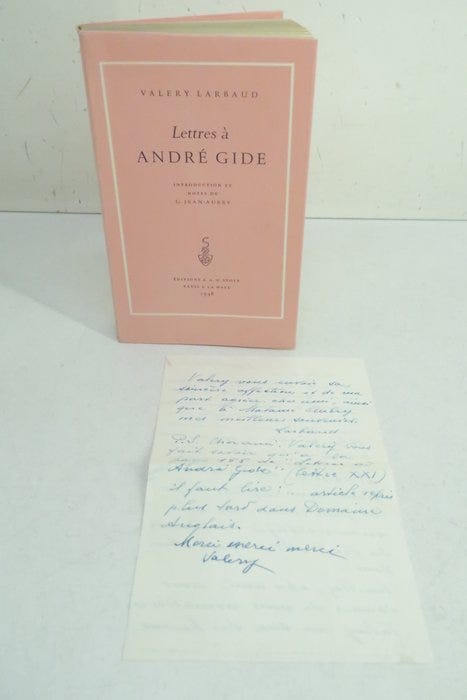 VALERY LARBAUD
Lettres à
ANDRÉ GIDE
INTRODUCTION ET
NOTES DE
G. JEAN-AUBRY
ÉDITIONS A. A. M. STOLS
PARIS & LA HAYE
1948
Valery vous envoie sa
sincère affection et de ma
part
que à Madame Aubry
mes meilleurs souvenirs.
Larbaud
P.S. Valery vous
fait savoir qu'à la
page 155 de "Lettres à
André Gide" (lettre XXI)
il faut lire: article repris
plus tard dans Domaine
Anglais.
Merci merci merci
Valery